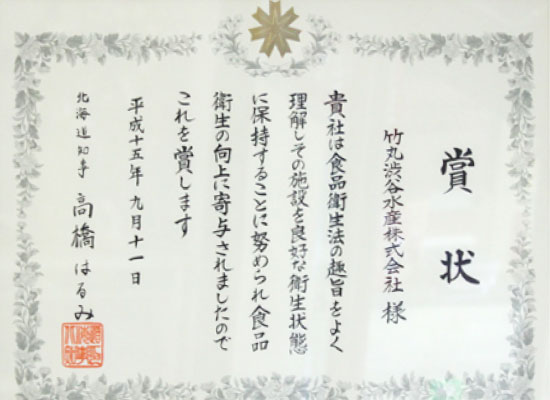 賞状
竹丸渋谷水産株式会社 様
貴社は食品衛生法の趣旨をよく
理解しその施設を良好な衛生状態
に保持することに努められ食品
衛生の向上に寄与されましたので
これを賞します
平成十五年九月十一日
北海道知事 高橋はるみ